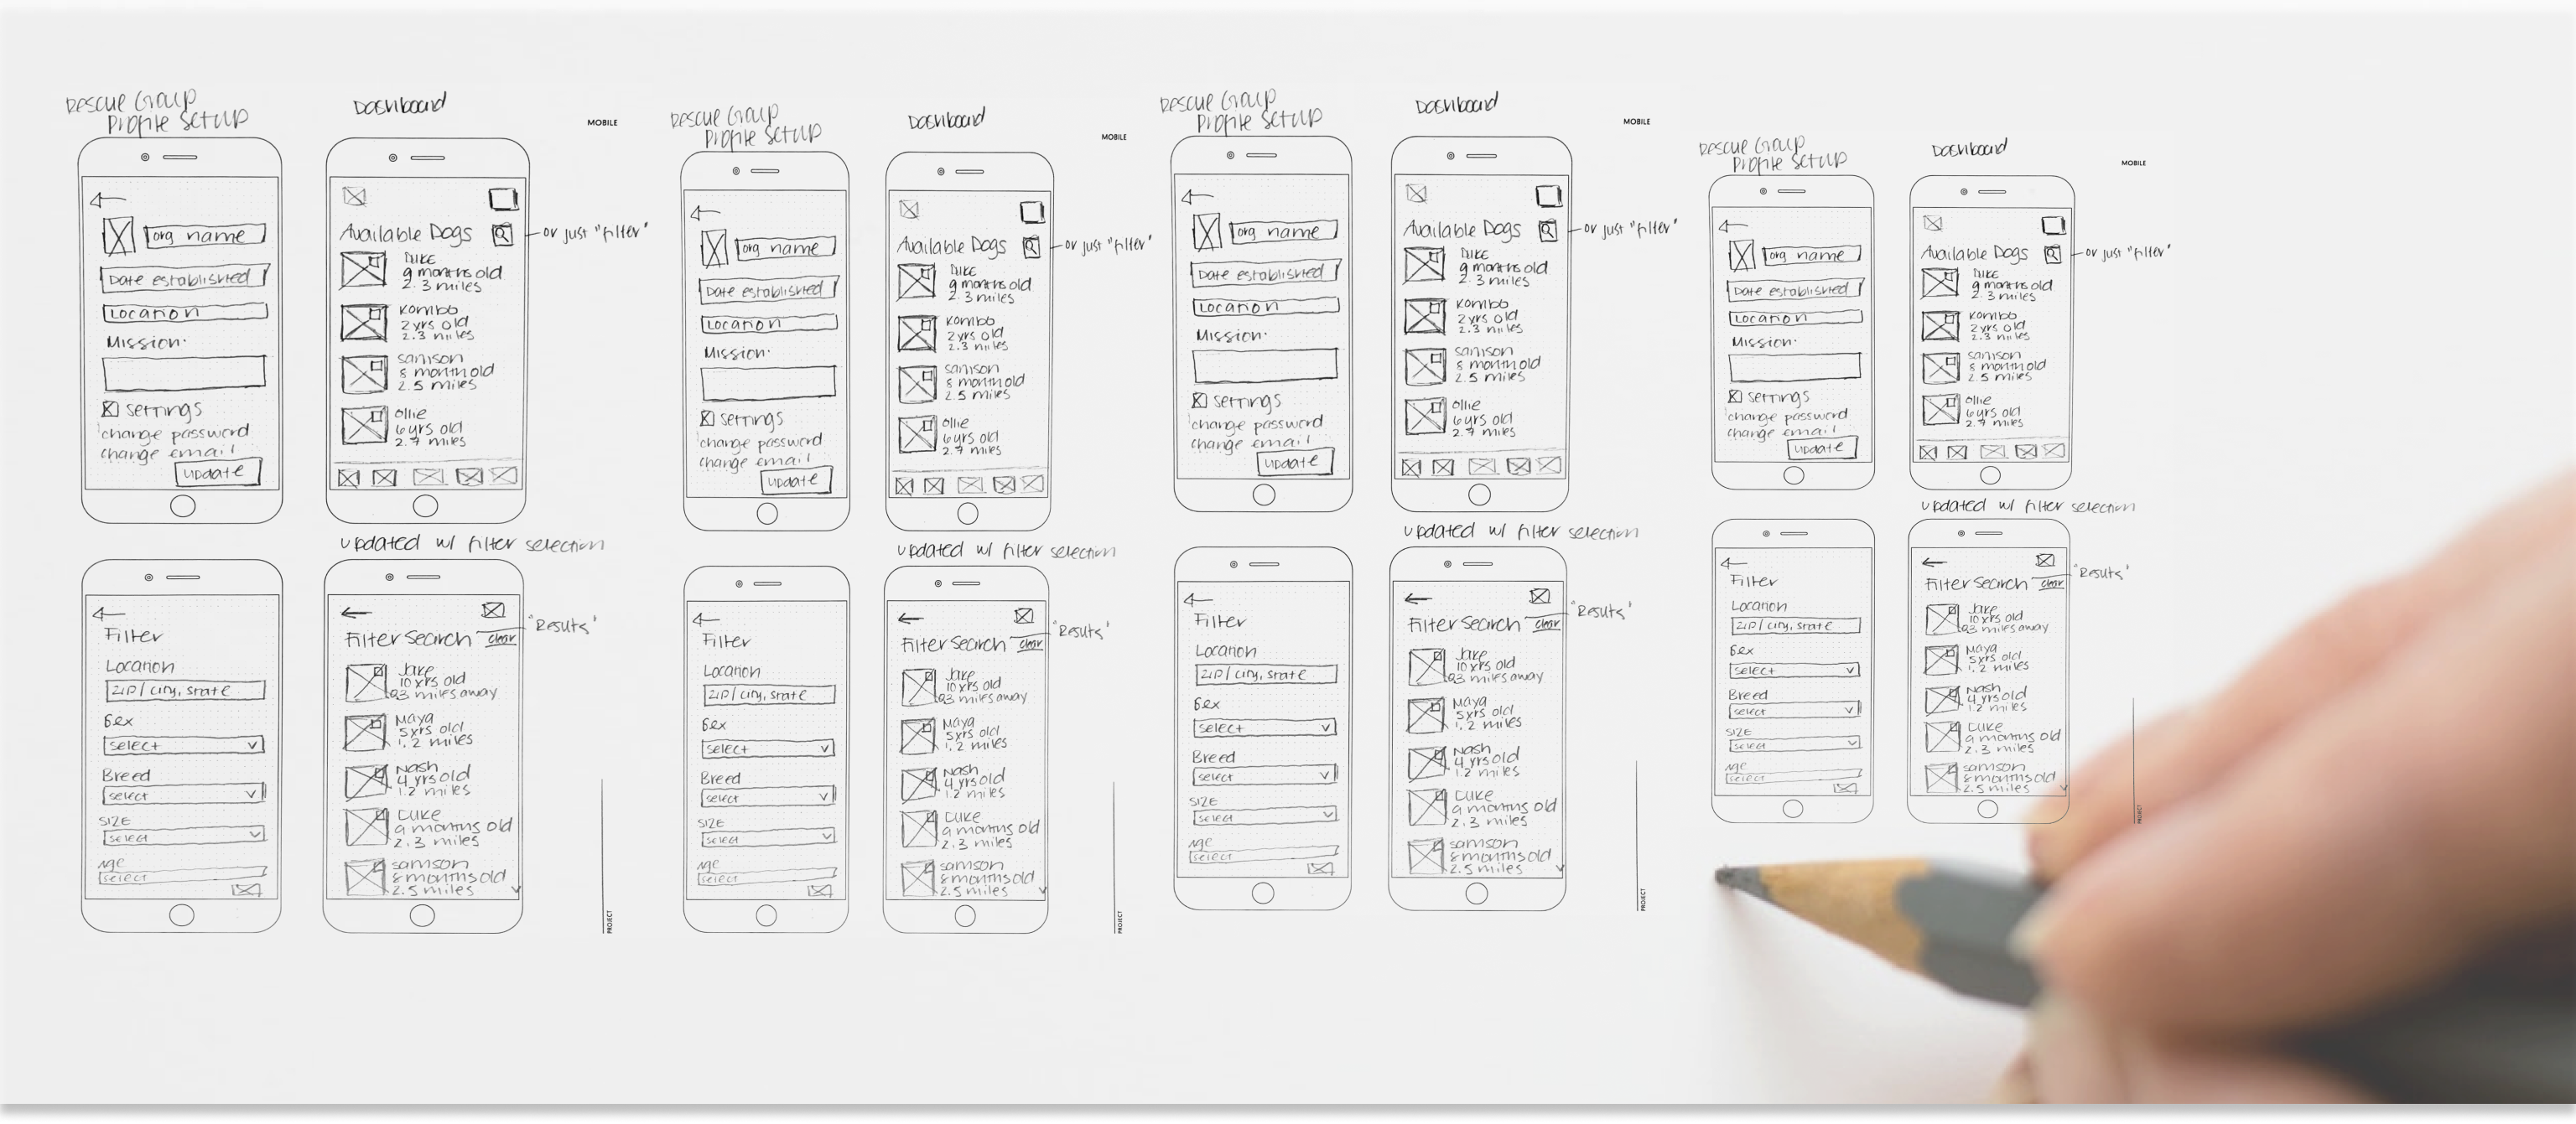 Rescue Group
Profile Setup
org name
Date established
Location
Mission:
Settings
change password
change email
update
Dashboard
MOBILE
Available Dogs
or just "filter"
Duke
9 months old
2.3 miles
Kombo
2 yrs old
2.3 miles
Samson
8 month old
2.5 miles
Ollie
6 yrs old
2.7 miles
Filter
Location
ZIP / city, state
Sex
select
Breed
select
SIZE
select
Age
select
updated w/ filter selection
Filter Search
clear
"Results"
Jake
10 yrs old
0.3 miles away
Maya
5 yrs old
1.2 miles
Nash
4 yrs old
1.2 miles
Duke
9 months old
2.3 miles
Samson
8 months old
2.5 miles
PROJECT
Rescue Group
Profile Setup
org name
Date established
Location
Mission:
Settings
change password
change email
update
Dashboard
MOBILE
Available Dogs
or just "filter"
Duke
9 months old
2.3 miles
Kombo
2 yrs old
2.3 miles
Samson
8 month old
2.5 miles
Ollie
6 yrs old
2.7 miles
Filter
Location
ZIP / city, state
Sex
select
Breed
select
SIZE
select
Age
select
updated w/ filter selection
Filter Search
clear
"Results"
Jake
10 yrs old
0.3 miles away
Maya
5 yrs old
1.2 miles
Nash
4 yrs old
1.2 miles
Duke
9 months old
2.3 miles
Samson
8 months old
2.5 miles
PROJECT
Rescue Group
Profile Setup
org name
Date established
Location
Mission:
Settings
change password
change email
update
Dashboard
MOBILE
Available Dogs
or just "filter"
Duke
9 months old
2.3 miles
Kombo
2 yrs old
2.3 miles
Samson
8 month old
2.5 miles
Ollie
6 yrs old
2.7 miles
Filter
Location
ZIP / city, state
Sex
select
Breed
select
SIZE
select
Age
select
updated w/ filter selection
Filter Search
clear
"Results"
Jake
10 yrs old
0.3 miles away
Maya
5 yrs old
1.2 miles
Nash
4 yrs old
1.2 miles
Duke
9 months old
2.3 miles
Samson
8 months old
2.5 miles
PROJECT
Rescue Group
Profile Setup
org name
Date established
Location
Mission:
Settings
change password
change email
update
Dashboard
MOBILE
Available Dogs
or just "filter"
Duke
9 months old
2.3 miles
Kombo
2 yrs old
2.3 miles
Samson
8 month old
2.5 miles
Ollie
6 yrs old
2.7 miles
Filter
Location
ZIP / city, state
Sex
select
Breed
select
SIZE
select
Age
select
updated w/ filter selection
Filter Search
clear
"Results"
Jake
10 yrs old
0.3 miles away
Maya
5 yrs old
1.2 miles
Nash
4 yrs old
1.2 miles
Duke
9 months old
2.3 miles
Samson
8 months old
2.5 miles
PROJECT